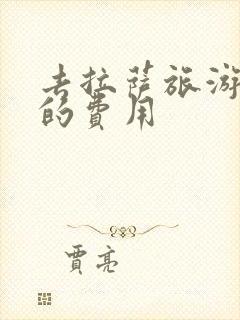 去拉萨旅游
的费用
贾亮